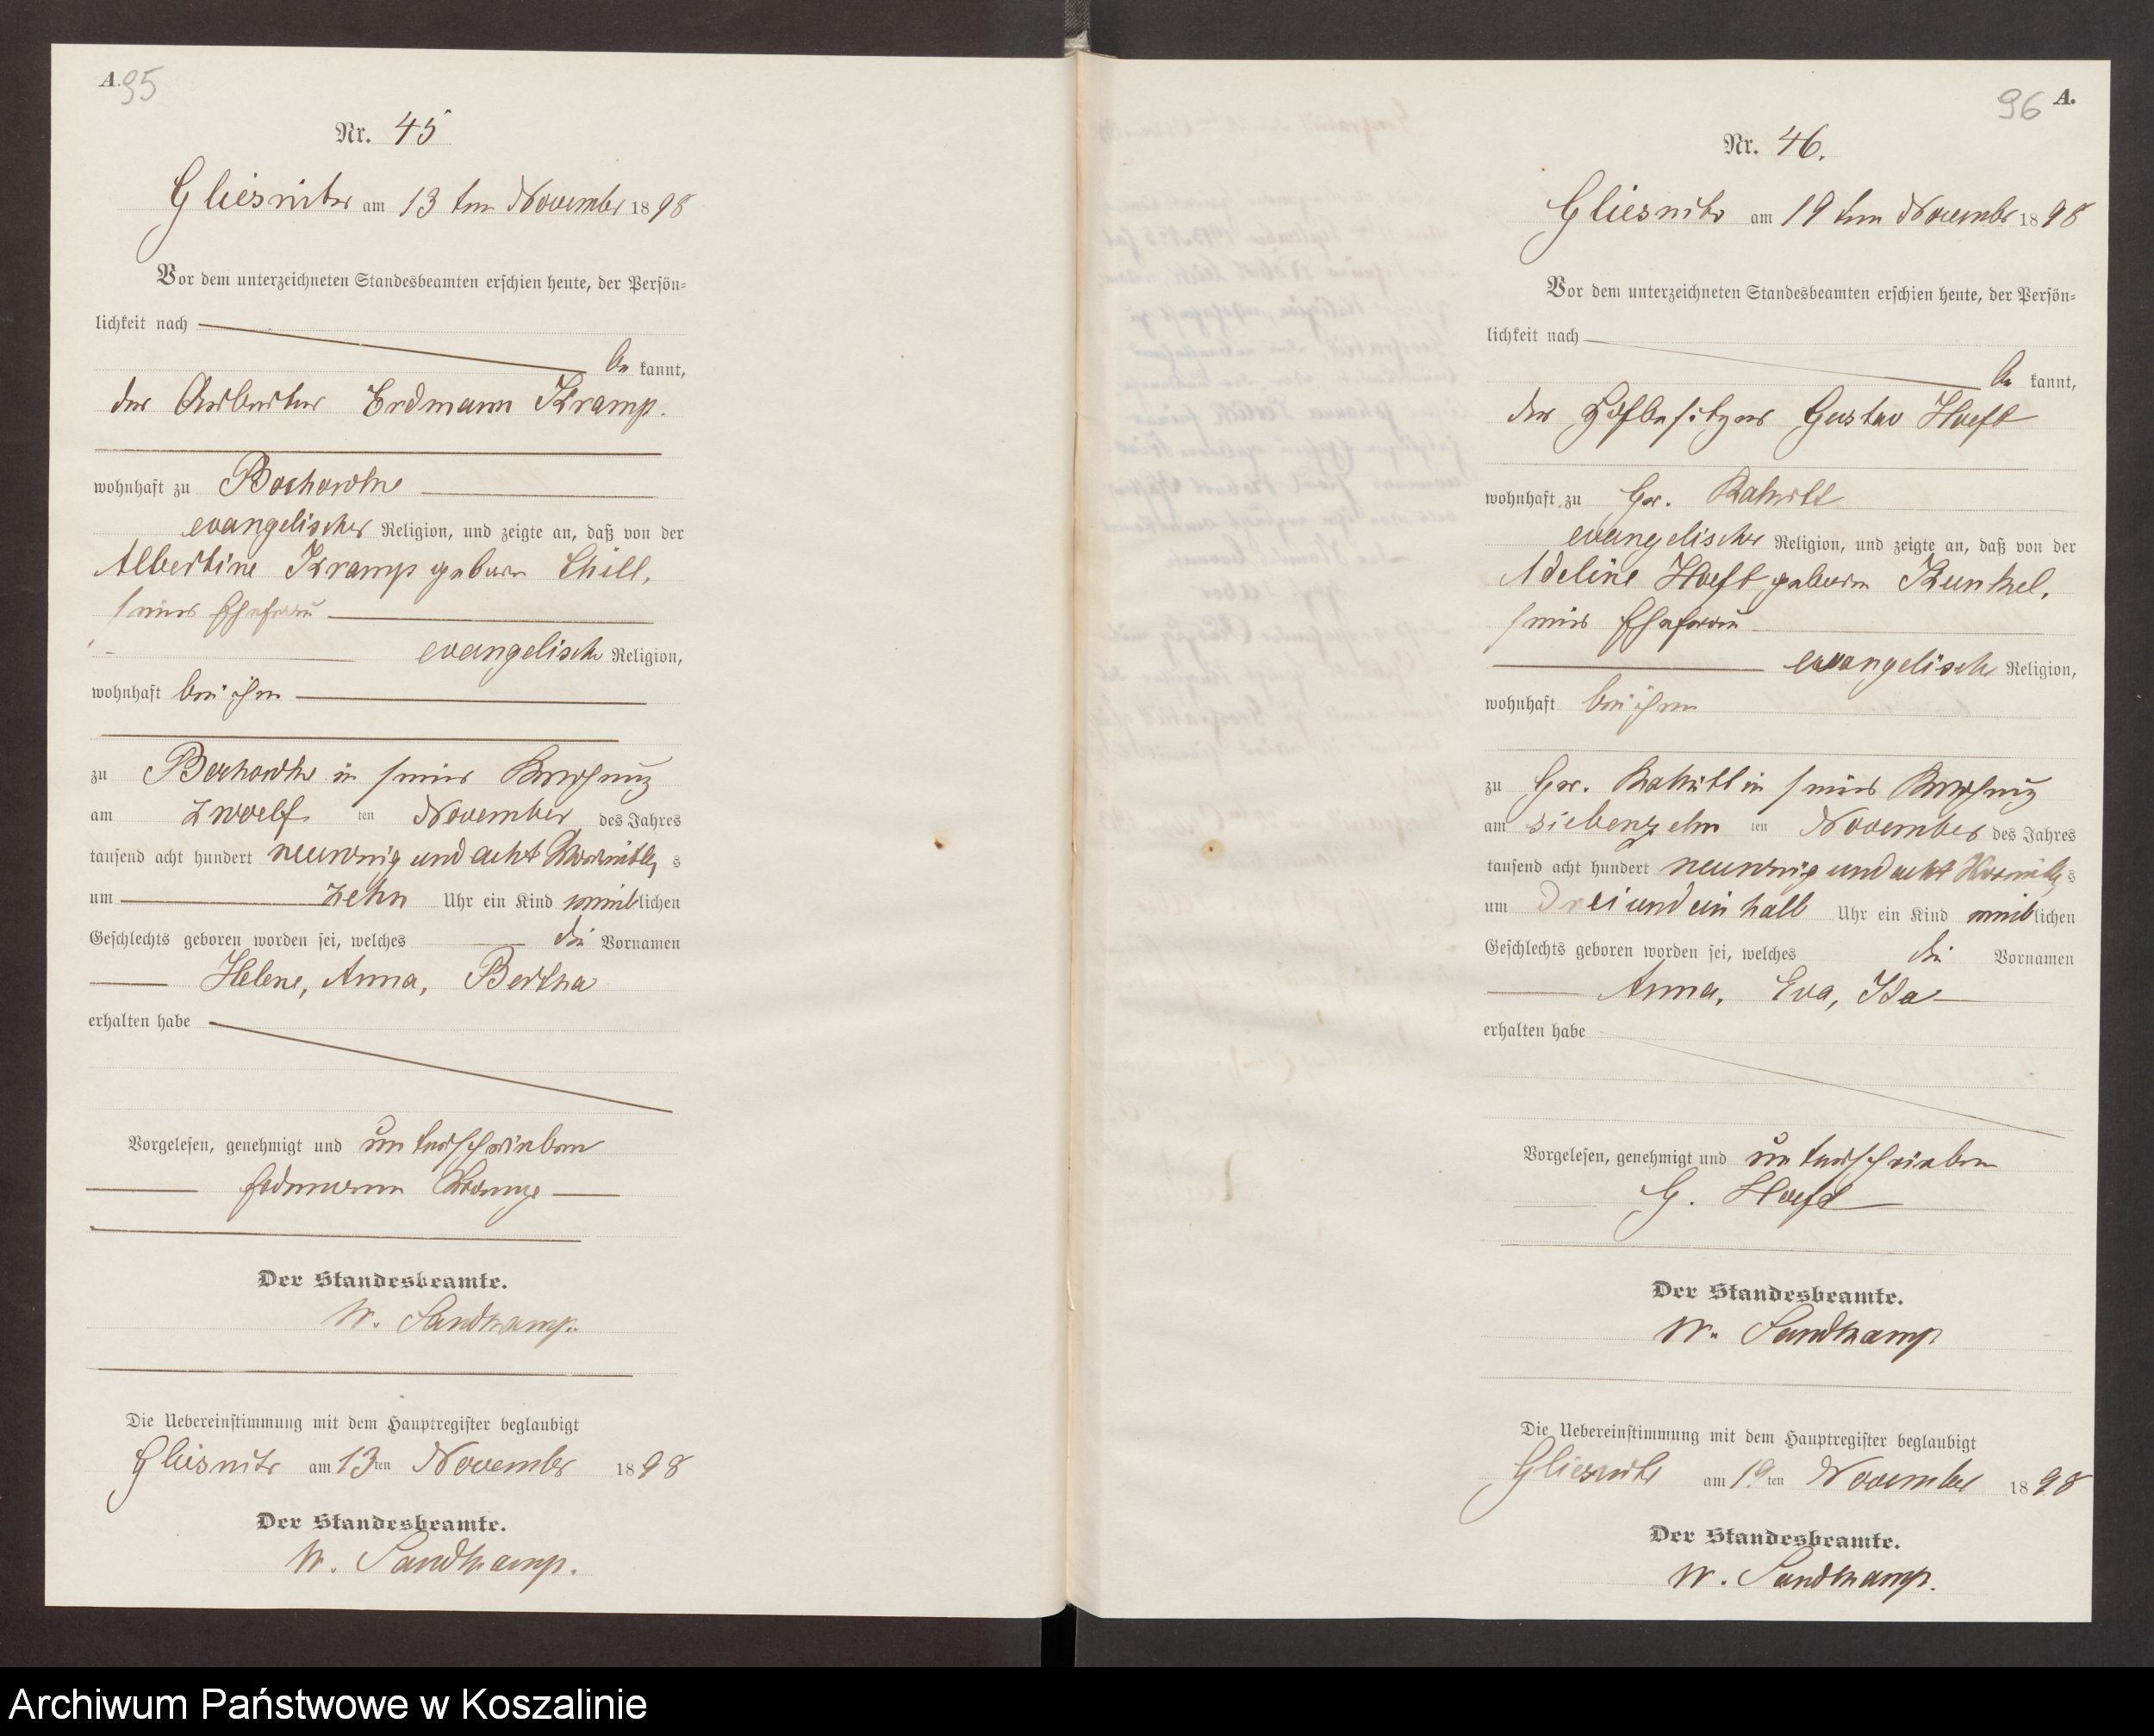 A. 95
Nr. 45
Gliesnitz am 13 ten November 1898
Vor dem unterzeichneten Standesbeamten erschien heute, der Persön-
lichkeit nach
be kannt,
der Arbeiter Erdmann Kramp.
wohnhaft zu
evangelischer Religion, und zeigte an, daß von der
Albertine Kramp geborn Chill,
seiner Ehefrau
evangelisch Religion,
wohnhaft bei ihm
zu in seiner Wohnung
am zwoelf ten November des Jahres
tausend acht hundert neunzig und acht Vormittag s
um zehn Uhr ein Kind weiblichen
Geschlechts geboren worden sei, welches die Vornamen
Helene, Anna, Bertha
erhalten habe
Vorgelesen, genehmigt und unterschrieben
Erdmann Kramp
Der Standesbeamte.
W. Sandkamp.
Die Uebereinstimmung mit dem Hauptregister beglaubigt
Gliesnitz am 13 ten November 1898
Der Standesbeamte.
W. Sandkamp.
96 A.
Nr. 46.
Gliesnitz am 19 ten November 1898
Vor dem unterzeichneten Standesbeamten erschien heute, der Persön-
lichkeit nach
be kannt,
der Hofbesitzer Gustav Hoeft
wohnhaft zu Gr.
evangelischer Religion, und zeigte an, daß von der
Adeline Hoeft geborn Kunkel,
seiner Ehefrau
evangelisch Religion,
wohnhaft bei ihm
zu Gr. in seiner Wohnung
am siebenzehn ten November des Jahres
tausend acht hundert neunzig und acht Vormittag s
um drei und ein halb Uhr ein Kind weiblichen
Geschlechts geboren worden sei, welches die Vornamen
Anna, Eva, Ida
erhalten habe
Vorgelesen, genehmigt und unterschrieben
G. Hoeft
Der Standesbeamte.
W. Sandkamp
Die Uebereinstimmung mit dem Hauptregister beglaubigt
Gliesnitz am 19 ten November 1898
Der Standesbeamte.
W. Sandkamp.
Archiwum Państwowe w Koszalinie